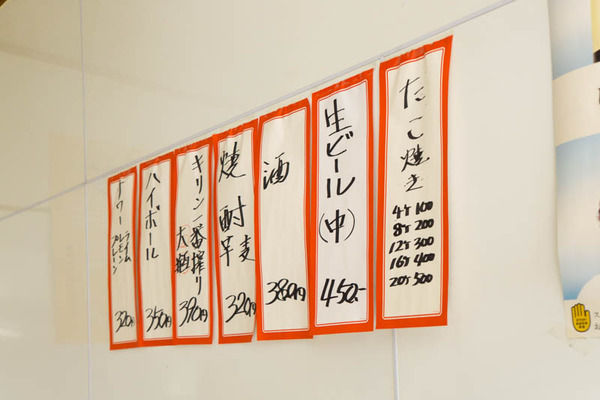 たこ焼き
4ケ 100
8ケ 200
12ケ 300
16ケ 400
20ケ 500
生ビール(中)
450.-
酒
380円
焼酎
芋 麦
320円
キリン一番搾り
大瓶
390円
ハイボール
350円
サワー
ライム
レモン
プレーン
320円